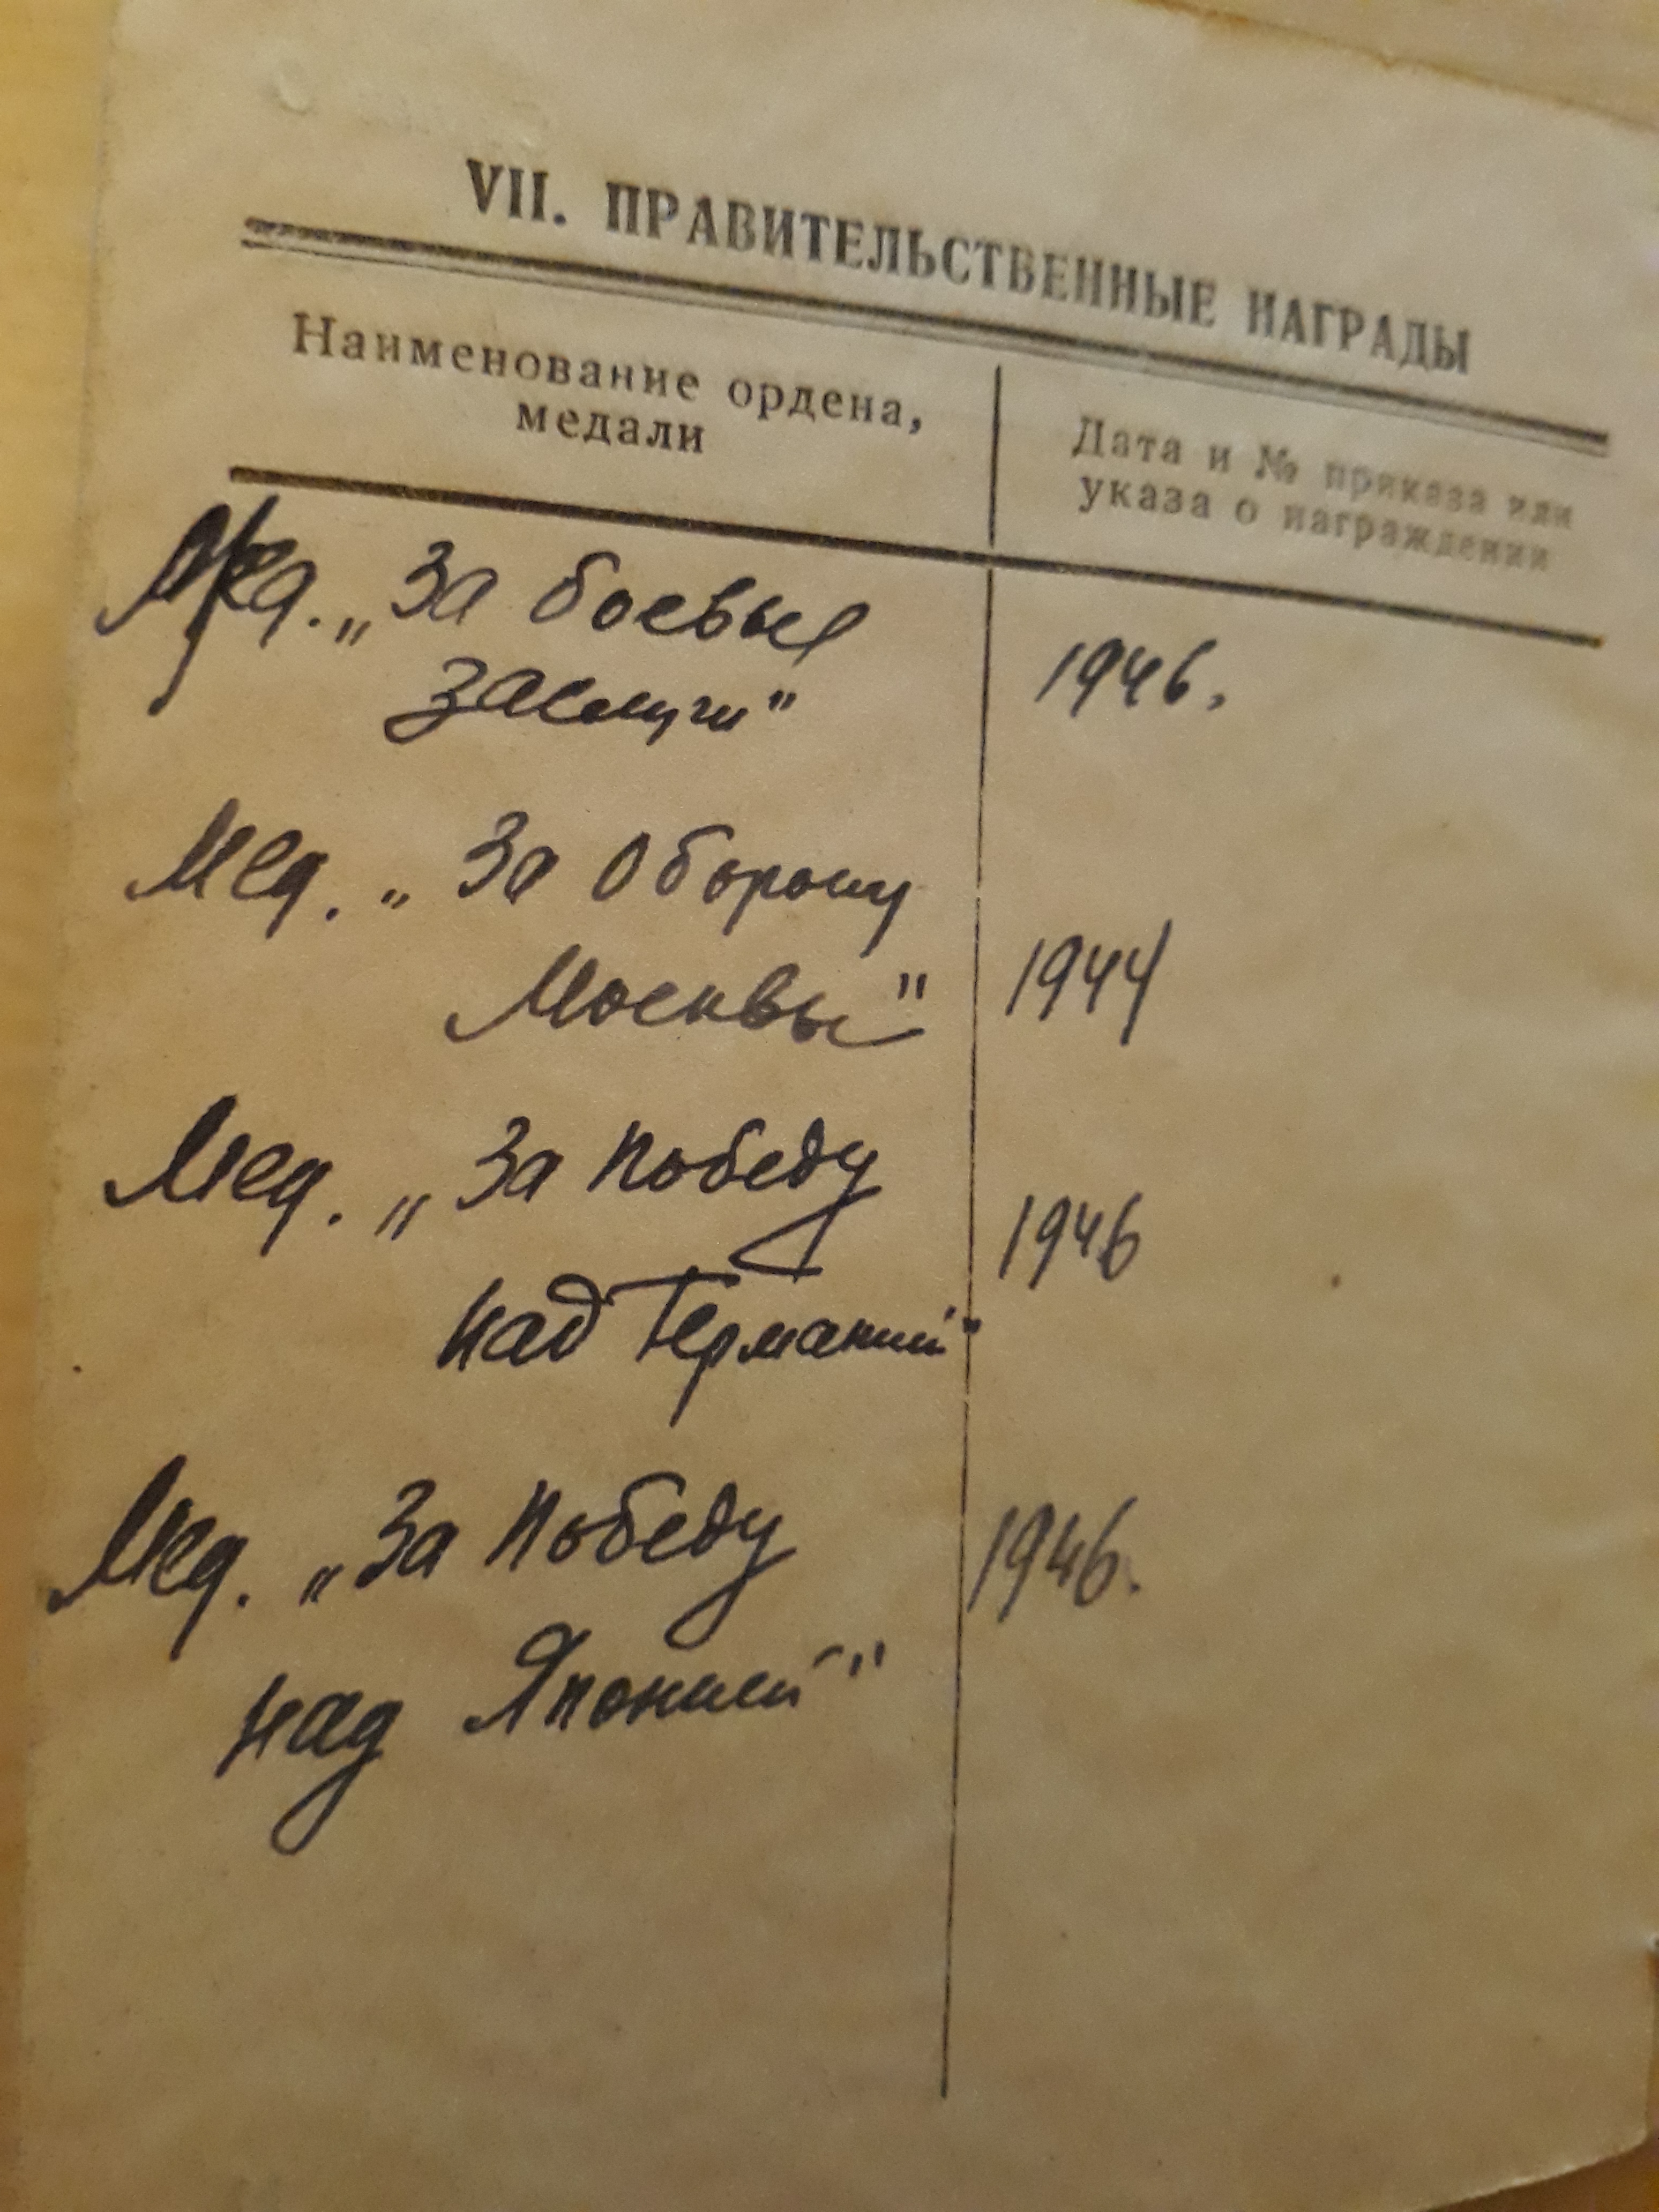 VII. ПРАВИТЕЛЬСТВЕННЫЕ НАГРАДЫ
Наименование ордена,
медали
Дата и № приказа или
указа о награждении
Мед. „За боевые
заслуги"
1946.
Мед. „За Оборону
Москвы"
1944
Мед. „За Победу
над Германией"
1946
Мед. „За Победу
над Японией"
1946.